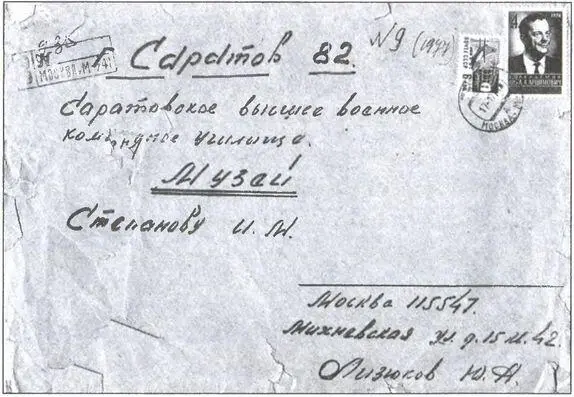 г. Саратов 82. №9 (1977)
Саратовское высшее военное
командное училище.
Музей
Степанову И. М.
Москва 115547.
Михневская ул. д. 15 м. 42.
Лизюков Ю. А.
МОСКВА
4
1974
ПОЧТА СССР
МОСКВА